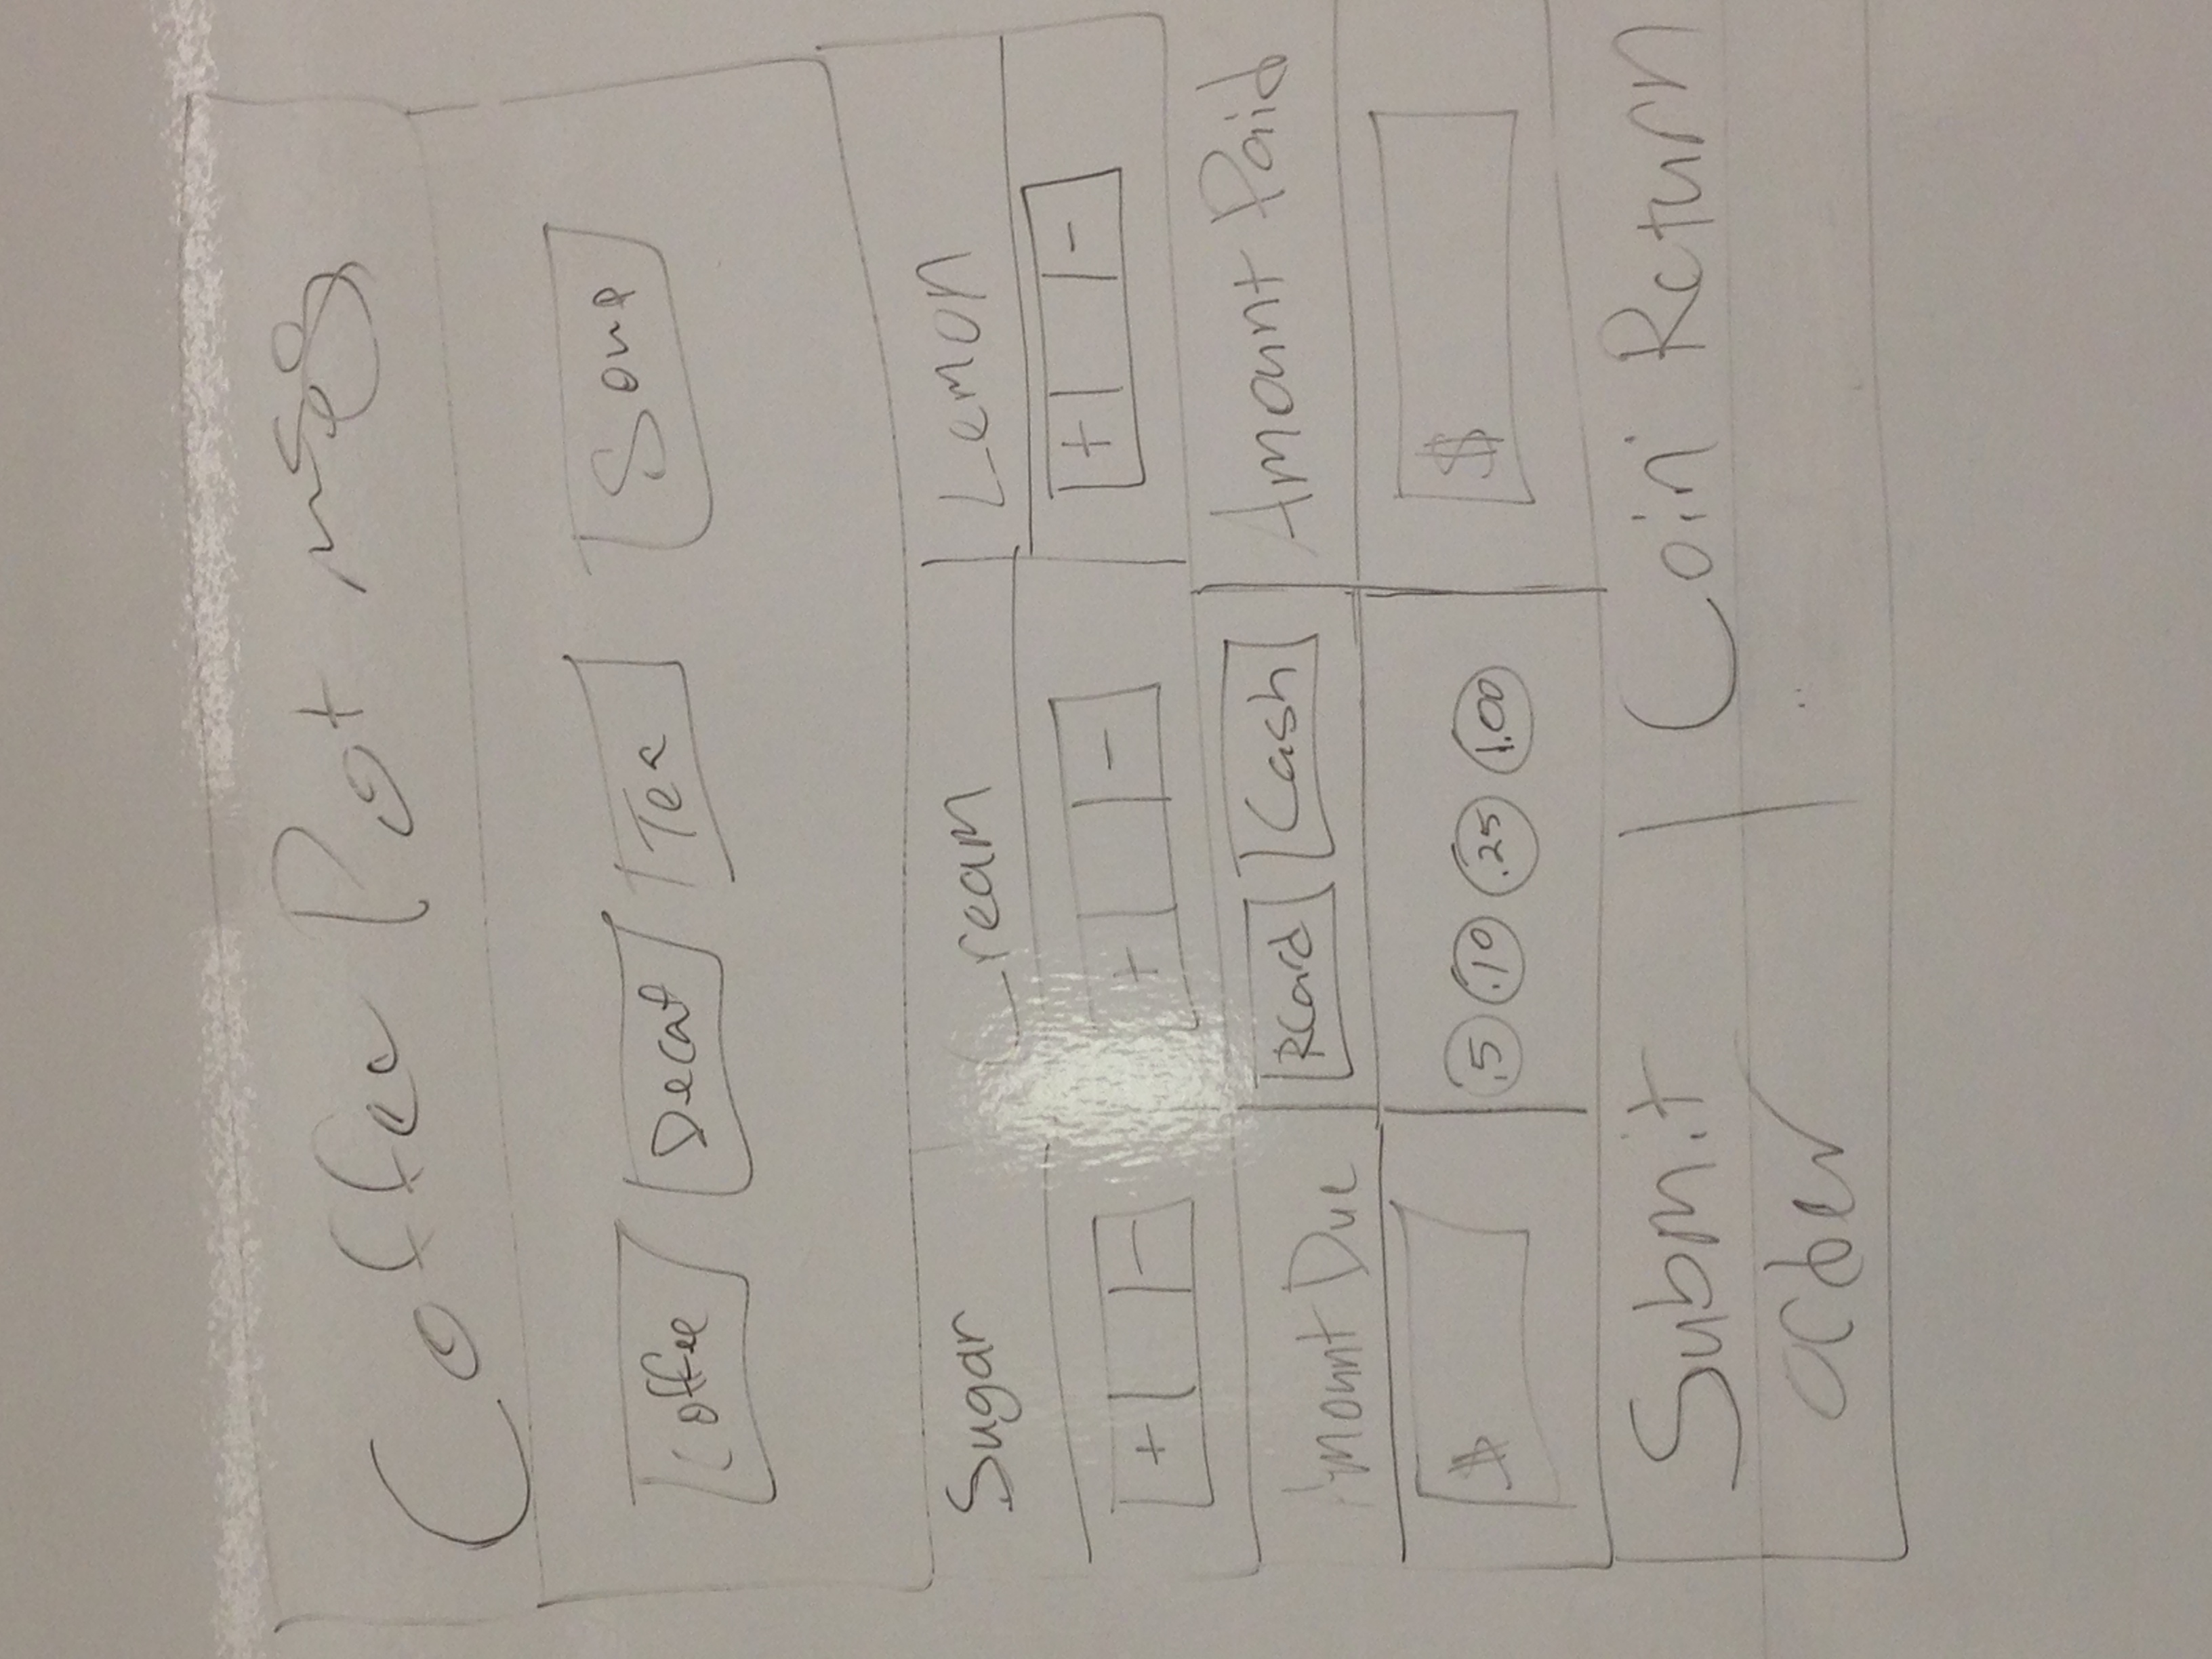 Coffee Pot msg
Coffee Decaf Tea Soup
Sugar Cream Lemon
+ - + - + -
Amount Due RCard Cash Amount Paid
$ .5 .10 .25 1.00 $
Submit Coin Return
order